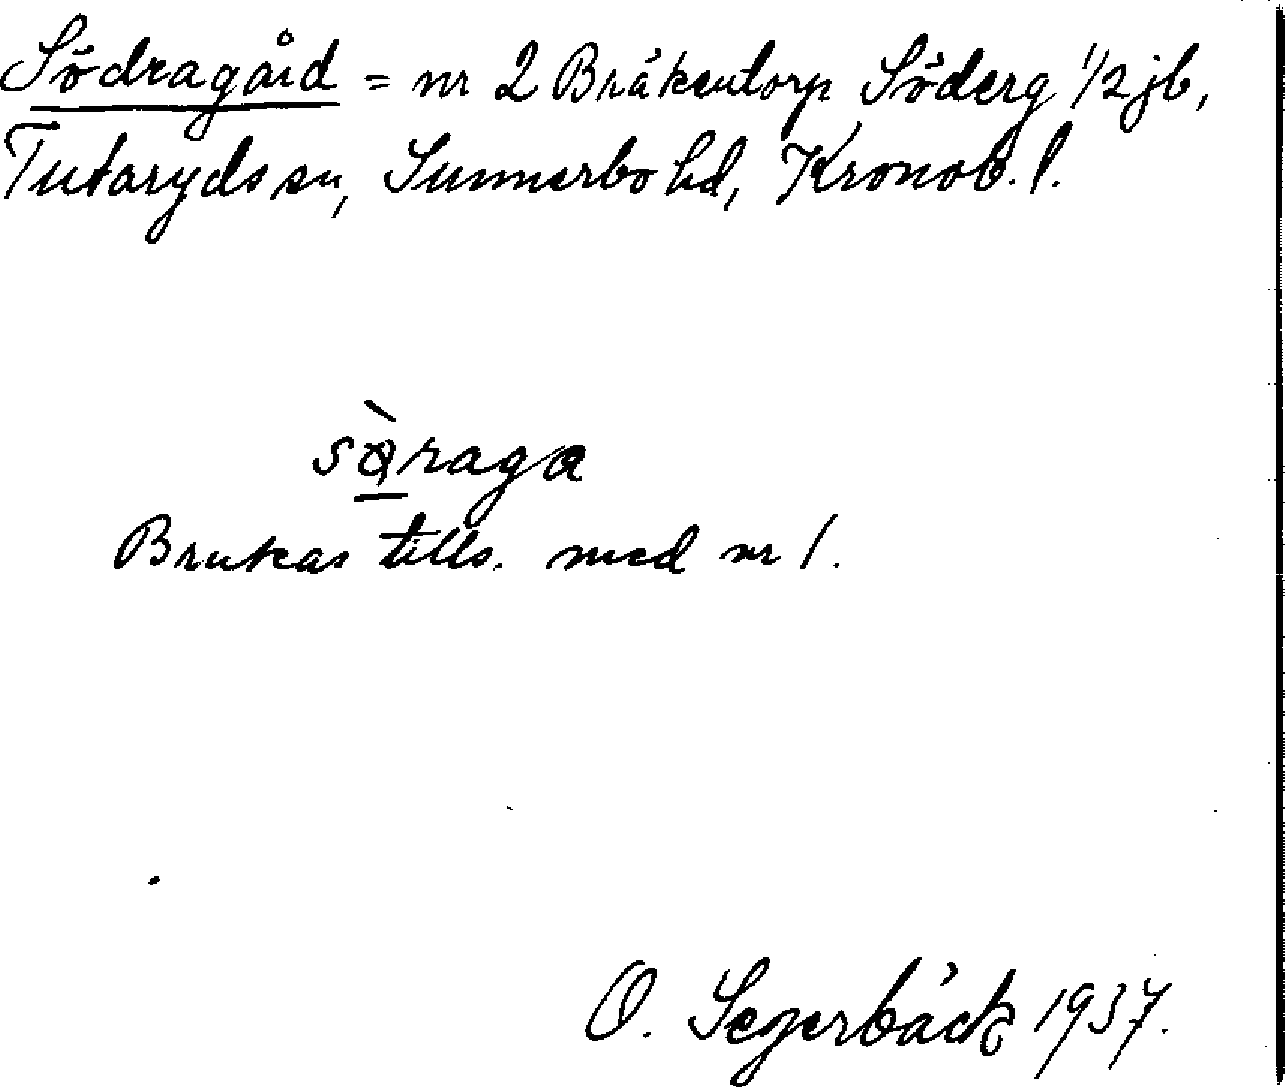 Södragård = nr 2 Bräkentorp Söderg 1/2 jb,
Tutaryds sn, Sunnerbo hd, Kronob. l.
Brukas tills. med nr 1.
O. Segerbäck 1937.